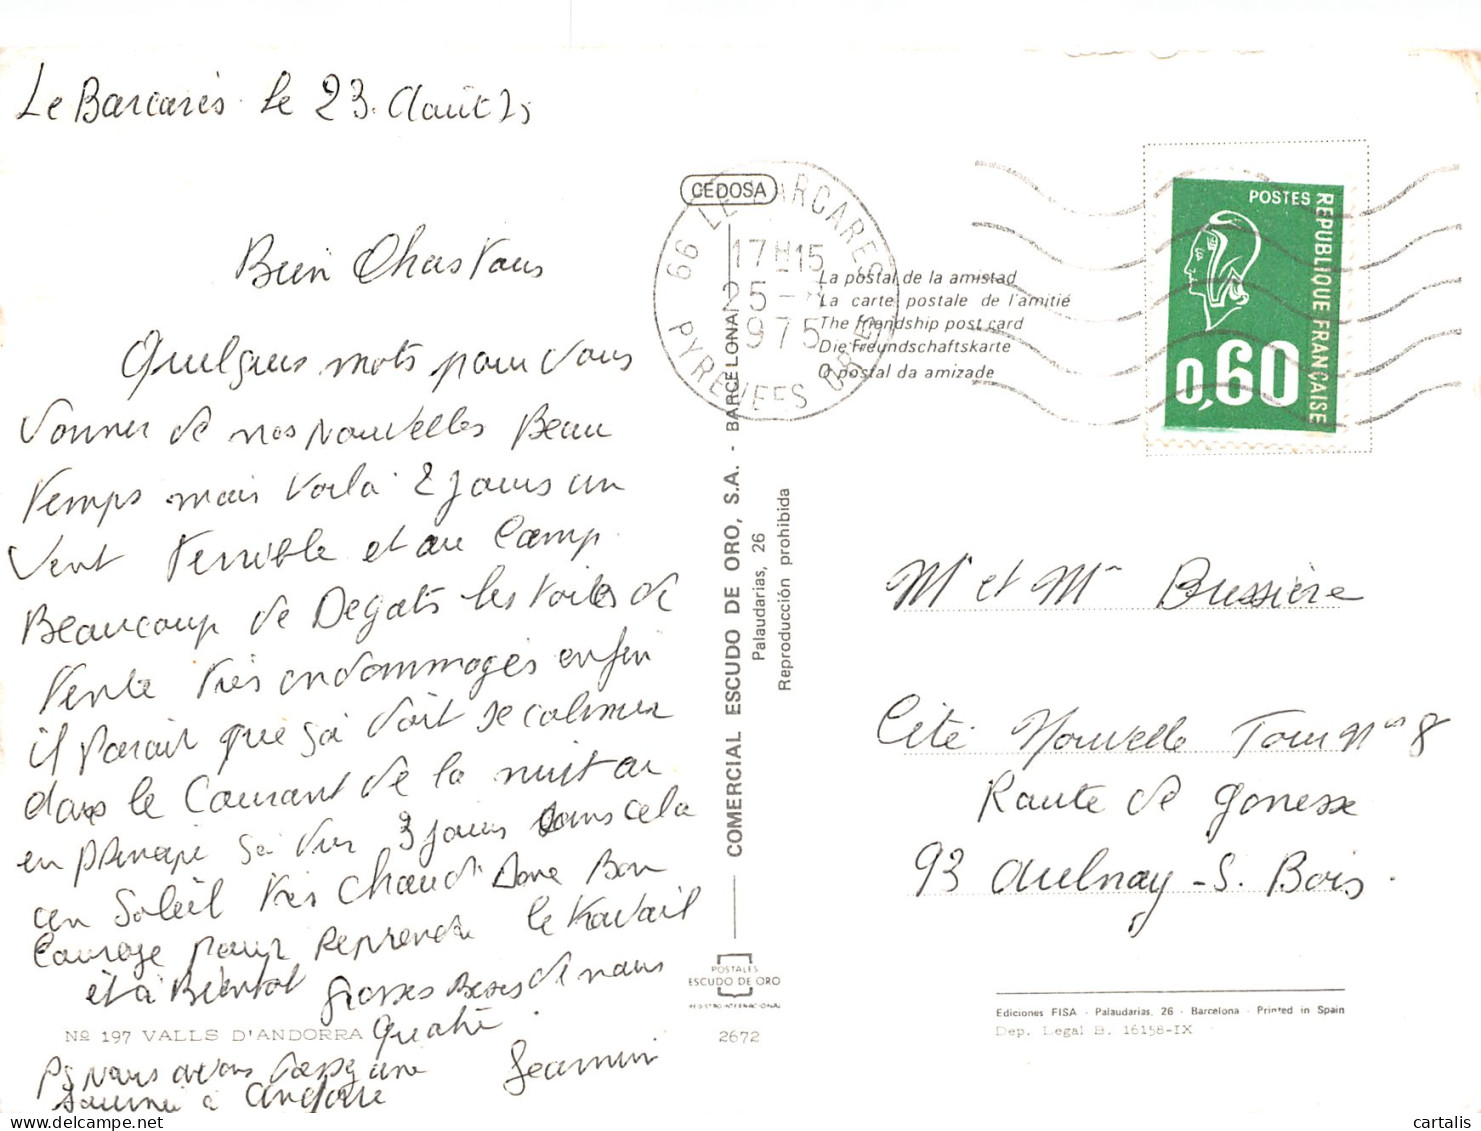 Le Barcarès le 23. Août 75
Bien Chers Tous
Quelques mots pour vous
donner de nos nouvelles Beau
temps mais voilà 2 jours un
vent terrible et au Camp
Beaucoup de Degats les toiles de
tente très endommagés enfin
il parait que sa doit se calmer
dans le Courant de la nuit car
en principe sa dur 3 jours dans cela
un Soleil très Chaud Donc Bon
Courage pour reprendre le travail
et à Bientot grosses Bises de nous
Quatre.
Jeannin
PS nous avons passé une
journée à Andorre
Nº 197 VALLS D'ANDORRA
2672
CEDOSA
66 LE BARCARES
17H15
25-8
1975
PYRENEES OR.
La postal de la amistad
La carte postale de l'amitié
The friendship post card
Die Freundschaftskarte
O postal da amizade
COMERCIAL ESCUDO DE ORO, S.A. - BARCELONA
Palaudarias, 26
Reproducción prohibida
POSTALES
ESCUDO DE ORO
REGISTRO INTERNACIONAL
POSTES
REPUBLIQUE FRANÇAISE
0,60
Mr et Me Bussière
Cité Nouvelle Tour No 8
Route de Gonesse
93 Aulnay-S. Bois.
Ediciones FISA - Palaudarias, 26 - Barcelona - Printed in Spain
Dep. Legal B. 16158-IX
cartalis